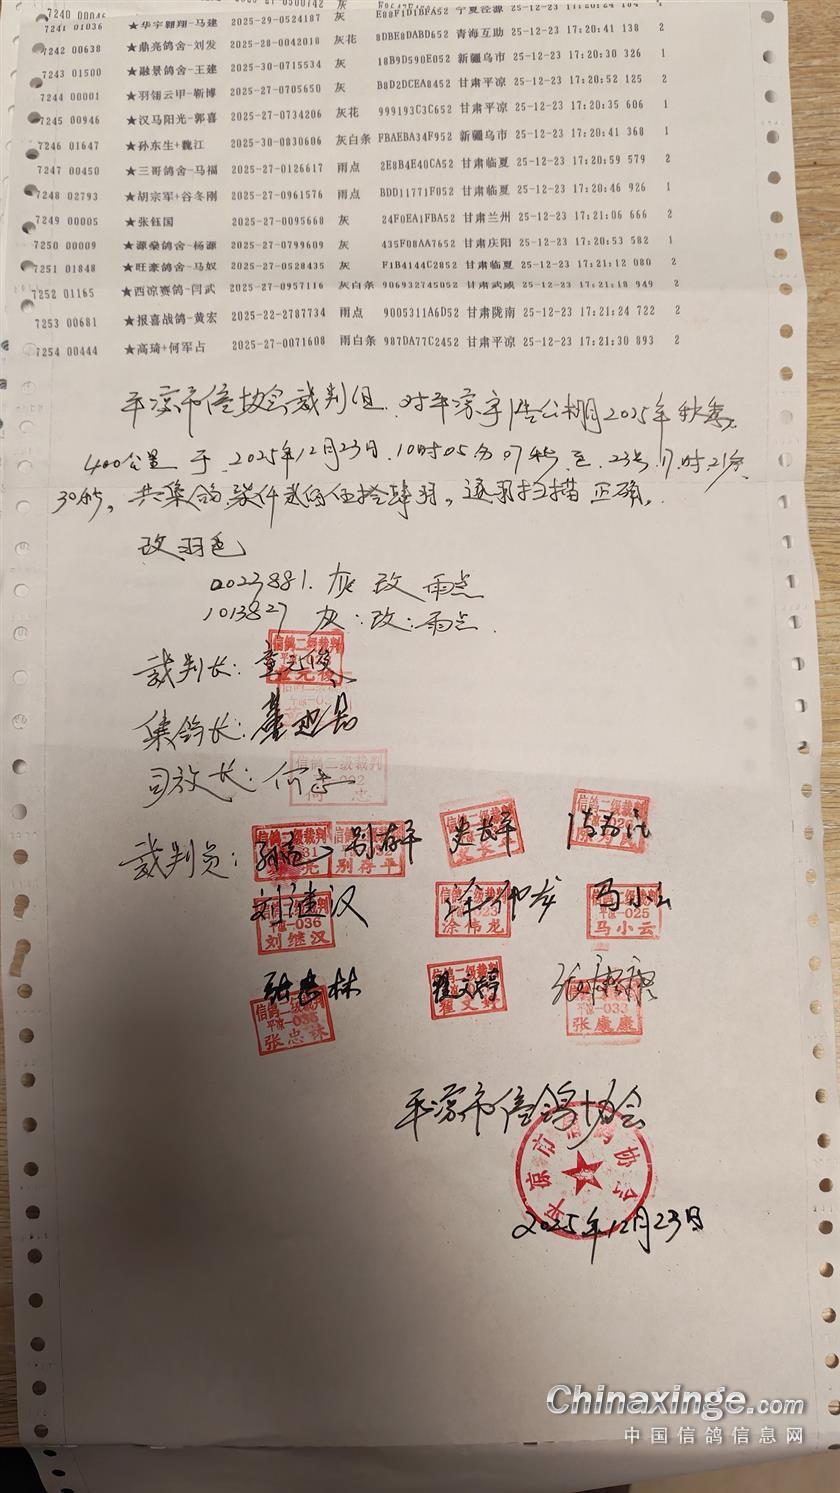 7240
7241 01036 ★华宇翱翔-马建 2025-29-0524187 灰 E08F1D1BFA52 宁夏泾源
7242 00638 ★鼎亮鸽舍-刘发 2025-28-0042018 灰花 8DBE8DABD652 青海互助 25-12-23 17:20:41 138 2
7243 01500 ★融景鸽舍-王建 2025-30-0715534 灰 18B9D590E052 新疆乌市 25-12-23 17:20:30 326 1
7244 00001 ★羽翎云甲-靳博 2025-27-0705650 灰 B8D2DCEA8452 甘肃平凉 25-12-23 17:20:52 125 2
7245 00946 ★汉马阳光-郭喜 2025-27-0734206 灰花 999193C3C652 甘肃平凉 25-12-23 17:20:35 606 1
7246 01647 ★孙东生+魏江 2025-30-0830606 灰白条 FBAEBA34F952 新疆乌市 25-12-23 17:20:41 368 1
7247 00450 ★三哥鸽舍-马福 2025-27-0126617 雨点 2E8B4E40CA52 甘肃临夏 25-12-23 17:20:59 579 2
7248 02793 ★胡宗军+谷冬刚 2025-27-0961576 雨点 BDD11771F052 甘肃临夏 25-12-23 17:20:46 926 1
7249 00005 ★张钰国 2025-27-0095668 灰 24F0EA1FBA52 甘肃兰州 25-12-23 17:21:06 666 2
7250 00009 ★源燊鸽舍-杨源 2025-27-0799609 灰 435F08AA7652 甘肃庆阳 25-12-23 17:20:53 582 1
7251 01848 ★旺豪鸽舍-马奴 2025-27-0528435 灰 F1B4144C2852 甘肃临夏 25-12-23 17:21:12 080 2
7252 01165 ★西凉赛鸽-闫武 2025-27-0957116 灰白条 906932745052 甘肃武威 25-12-23 17:21:18 949 2
7253 00681 ★报喜战鸽-黄宏 2025-22-2787734 雨点 9005311A6D52 甘肃陇南 25-12-23 17:21:24 722 2
7254 00444 ★高琦+何军占 2025-27-0071608 雨白条 987DA77C2452 甘肃平凉 25-12-23 17:21:30 893 2
平凉市信协会裁判组 对平凉宇浩公棚2025年秋季
400公里 于 2025年12月23日.10时05分07秒 至 23号17时21分
30秒, 共集鸽柒仟贰佰伍拾肆羽, 逐羽扫描 正确.
改羽色
0023881. 灰 改 雨点
1013827 灰:改:雨点.
裁判长: 童元俊
集鸽长: 董
司放长: 何忠
裁判员: 别存平 史长平
刘继汉 涂伟龙 马小云
张忠林 翟文婷 张康康
信鸽二级裁判
信鸽二级裁判
何忠
信鸽二级裁判
信鸽二级裁判
别存平
信鸽二级裁判
信鸽二级裁判
信鸽二级裁判
平凉-036
刘继汉
信鸽二级裁判
涂伟龙
信鸽二级裁判
平凉-025
马小云
信鸽二级裁判
张忠林
信鸽二级裁判
信鸽二级裁判
张康康
平凉市信鸽协会
平凉市信鸽协会
2025年12月23日
Chinaxinge.com
中国信鸽信息网